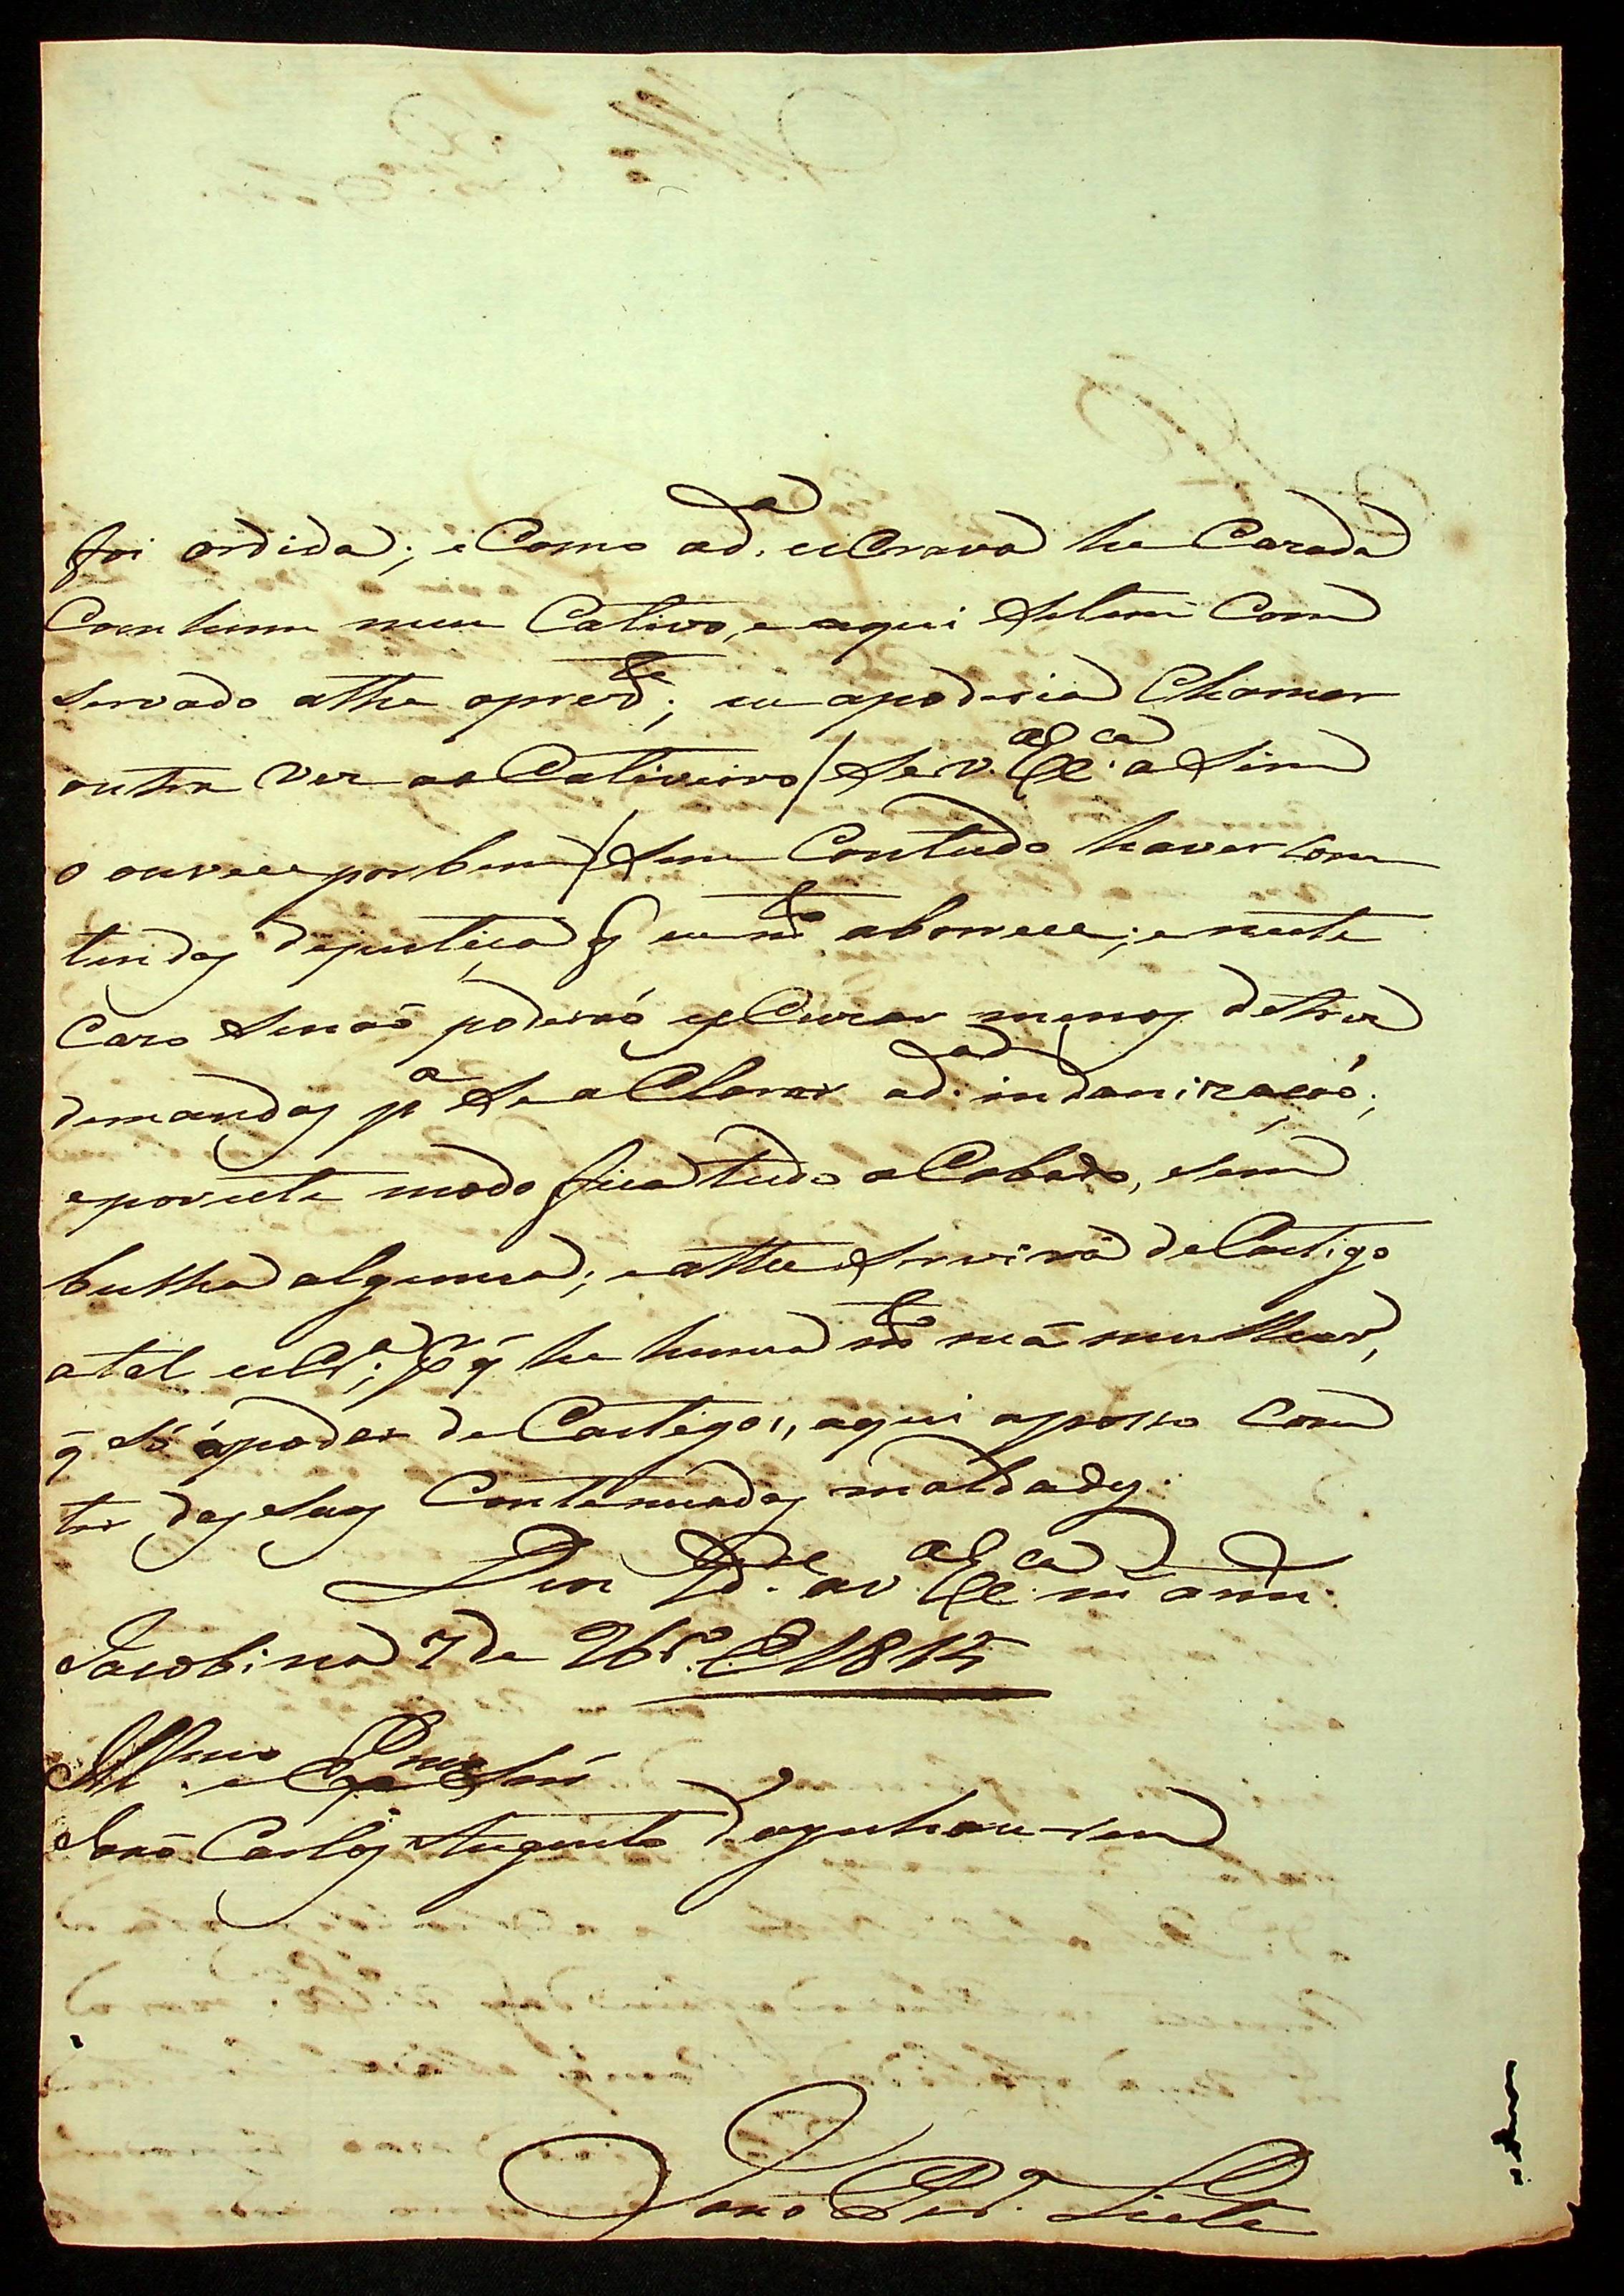 foi ordida; e Como ad.ª escrava he Cazada
Com hum meu Cativo, e aqui Setem Com
servado athe oprezᵗᵉ; eu apoderia Chamar
outra vez ao Cativeiro / Se V. Exᶜᵃ asim
o ouvese por bem / Sem Contudo haver con
tendas dejustiça q̃ eu mᵗᵒ aborrese; e neste
Cazo Senão poderaó escuzar menos detrez
demandas pª Se aClarar ad.ª indanizacaó;
epor este modo fica tudo aCabado, e sem
bulha alguma; e athe Servirá de Castigo
atal escrª; p̃ q̃ he huma mᵗᵒ má mulher,
q̃ Só ápoder de Castigos, aqui aposso Con
ter das Suas Contenuadas maldades.
Deos Gᵈᵉ a V. Exᶜᵃ m. ann.
Jacobina 7 de 9bʳᵒ de 1815
Illᵐᵒ e Exᵐᵒ Snr̃
João Carlos Augusto d'oyenhausen
João Per.ª Leite